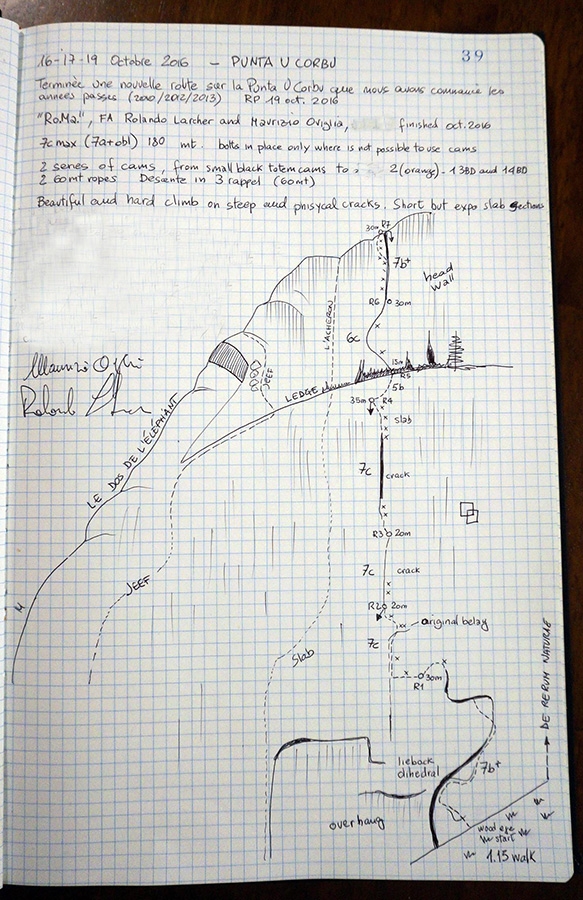 39
16-17-19 Octobre 2016 - PUNTA U CORBU
Terminèe une nouvelle route sur la Punta U Corbu que nous avons commencé les
années passes (2000/2012/2013) RP 19 oct. 2016
"RoMa", FA Rolando Larcher and Maurizio Oviglia, finished oct. 2016
7c max (7a+obl) 180 mt. bolts in place only where is not possible to use cams
2 series of cams, from small black totemcams to 2(orange) - 13BD and 14BD
2 60mt ropes Desente in 3 rappel (60mt)
Beautiful and hard climb on steep and phisycal cracks. Short but expo slab sections
30m R7
7b+
head
wall
R6 30m
L'ACHERON
6c
JEEF
15m
R5
LEDGE
5b
35m R4
slab
LE DOS DE L'ÉLÉPHANT
7c
crack
R3 20m
7c
crack
JEEF
R2 20m
original belay
7c
Slab
30m
R1
DE RERUM NATURAE
lieback
dihedral
7b+
overhang
start
1.15 walk